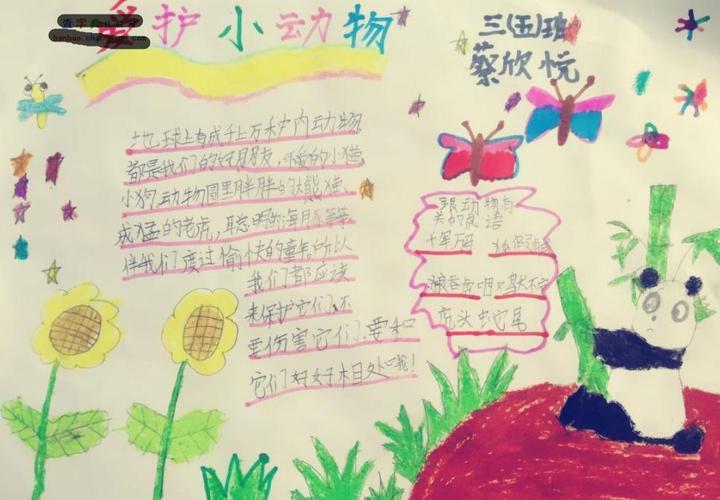 爱护小动物
三(五)班
蔡欣悦
地球上有成千上万种动物
都是我们的好朋友,可爱的小猫
小狗动物园里胖胖的大熊猫、
威猛的老虎,聪明的海豚等等
伴我们度过愉快的童年所以
我们都应该
来保护它们,不
要伤害它们,要和
它们好好相处哦!
跟动物有
关的成语
千军万马
狐假虎威
狼吞虎咽
鸡犬不宁
虎头蛇尾